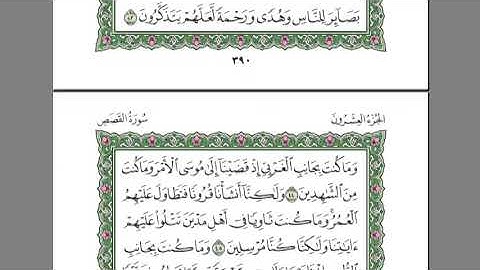 بَصَآئِرَ لِلنَّاسِ وَهُدًى وَرَحْمَةً لَّعَلَّهُمْ يَتَذَكَّرُونَ ٤٣
٣٩٠
الجُزْءُ العِشْرُونَ
سُورَةُ القَصَصِ
وَمَا كُنتَ بِجَانِبِ ٱلْغَرْبِيِّ إِذْ قَضَيْنَآ إِلَىٰ مُوسَى ٱلْأَمْرَ وَمَا كُنتَ
مِنَ ٱلشَّٰهِدِينَ ٤٤ وَلَٰكِنَّآ أَنشَأْنَا قُرُونًا فَتَطَاوَلَ عَلَيْهِمُ
ٱلْعُمُرُ وَمَا كُنتَ ثَاوِيًا فِىٓ أَهْلِ مَدْيَنَ تَتْلُوا۟ عَلَيْهِمْ
ءَايَٰتِنَا وَلَٰكِنَّا كُنَّا مُرْسِلِينَ ٤٥ وَمَا كُنتَ بِجَانِبِ